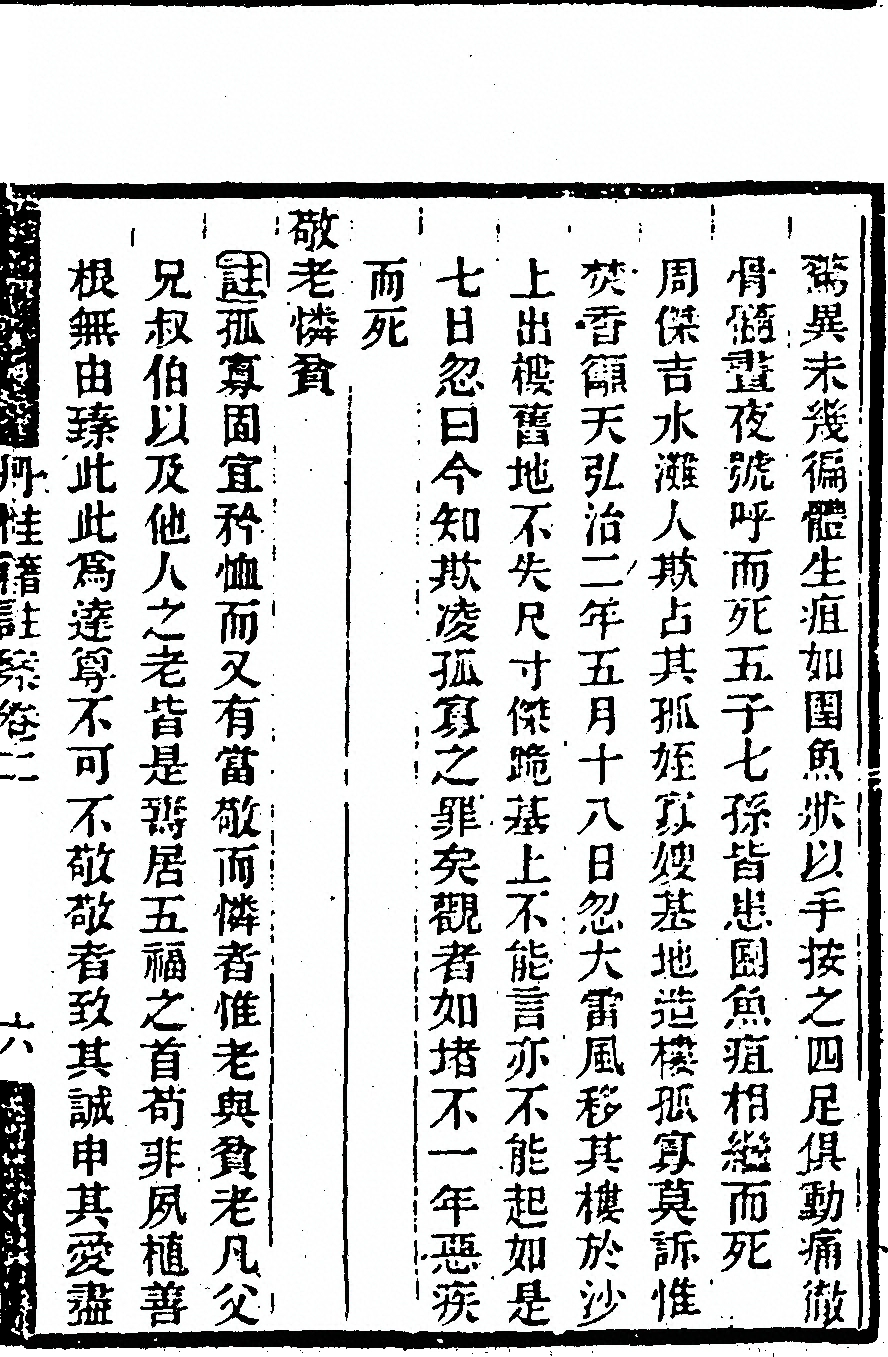 驚異未幾徧體生疽如團魚狀以手按之四足俱動痛徹
骨髓晝夜號呼而死五子七孫皆患團魚疽相繼而死
周傑吉水灘人欺占其孤姪寡嫂基地造樓孤寡莫訴惟
焚香籲天弘治二年五月十八日忽大雷風移其樓於沙
上出樓舊地不失尺寸傑跪基上不能言亦不能起如是
七日忽曰今知欺凌孤寡之罪矣觀者如堵不一年惡疾
而死
敬老憐貧
註孤寡固宜矜恤而又有當敬而憐者惟老與貧老凡父
兄叔伯以及他人之老皆是壽居五福之首苟非夙植善
根無由臻此此為達尊不可不敬敬者致其誠申其愛盡
丹桂籍註案卷二
六